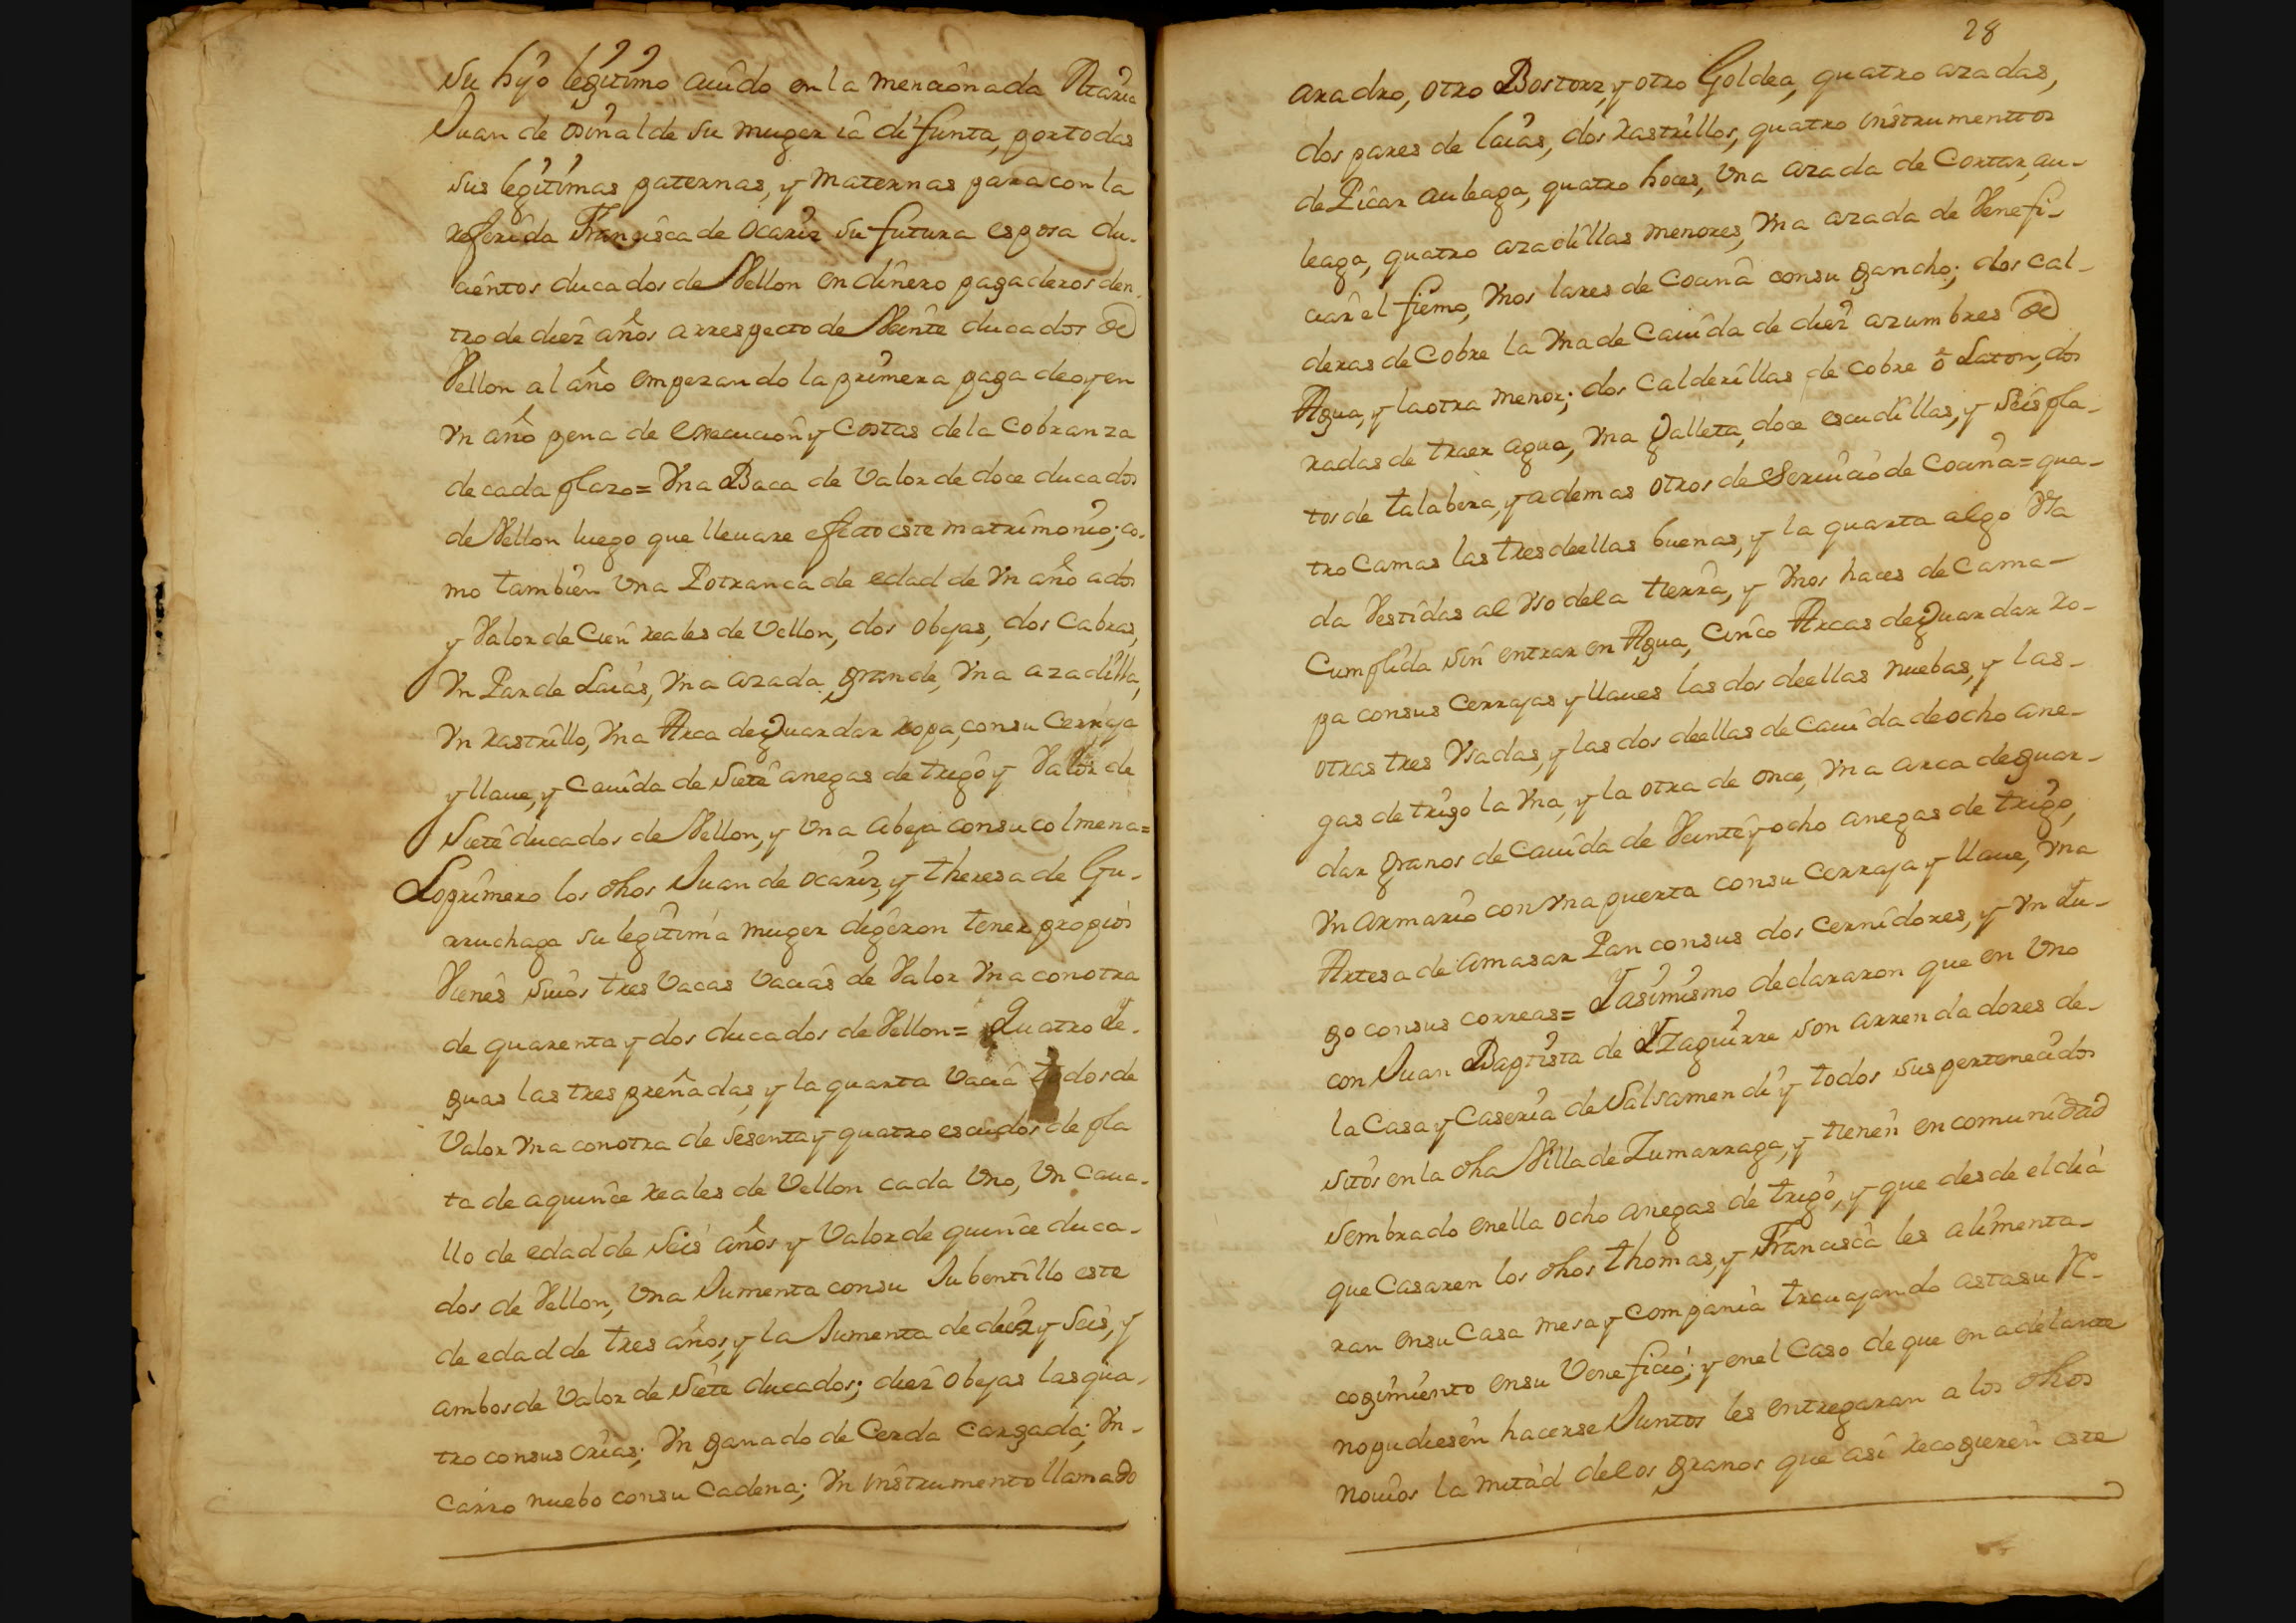 su hijo legitimo auido en la mencionada Maria
Juan de osinalde su muger ia difunta, por todas
sus legitimas paternas, y maternas para con la
referida Francisca de Ocariz su futura esposa du-
cientos ducados de Vellon en dinero pagaderos den-
tro de diez años a respecto de Veinte ducados de
Vellon al año empezando la primera paga de oy en
Vn año pena de execucion y costas de la cobranza
de cada plazo = Vna Baca de Valor de doce ducados
de Vellon luego que lleuare efecto este matrimonio; co-
mo tambien Vna Potranca de edad de Vn año a dos
y Valor de Cien reales de Vellon, dos obejas, dos Cabras,
Vn Par de Laias, Vna azada grande, Vna azadilla,
Vn rastrillo, Vna Arca de guardar ropa, con su Cerraja
y llaue, y Cauida de siete anegas de trigo y Valor de
siete ducados de Vellon, y Vna abeja con su colmena =
Lo primero los dhos Juan de ocariz, y theresa de Gu-
rruchaga su legitima muger digeron tener propios
Vienes suios tres Vacas Vacias de Valor Vna con otra
de quarenta y dos ducados de Vellon = Quatro Ye-
guas las tres preñadas, y la quarta Vacia todos de
Valor Vna con otra de sesenta y quatro escudos de pla
ta de a quince reales de Vellon cada Vno, Vn Caua-
llo de edad de seis años y Valor de quince duca-
dos de Vellon, Vna Jumenta con su Jubentillo este
de edad de tres años, y la Jumenta de diez y seis, y
ambos de Valor de siete ducados; diez obejas las qua-
tro con sus crias; Vn ganado de Cerda cargada; Vn-
Carro nuebo con su Cadena; Vn instrumento llamado
28
aradro, otro Bostorz, y otro Goldea, quatro azadas,
dos pares de laias, dos rastrillos, quatro instrumenttos
de Picar auleaga, quatro hoces, Vna azada de Cortar, au-
leaga, quatro azadillas menores, Vna azada de Venefi-
ciar el fiemo, Vnos lares de Cocina con su gancho; dos cal-
deras de Cobre la Vna de Cauida de diez azumbres de
Agua, y la otra menor; dos Calderillas de cobre ó Laton, dos
radas de traer agua, Vna galleta, doce escudillas, y seis pla-
tos de talabera, y ademas otros de Seruicio de Cocina = qua-
tro Camas las tres de ellas buenas, y la quarta algo Vsa
da Vestidas al Vso de la tierra, y Vnos haces de Cama-
Cumplida sin entrar en Agua, Cinco Arcas de guardar ro-
pa con sus Cerrajas y llaues las dos de ellas nuebas, y las-
otras tres Vsadas, y las dos de ellas de Cauida de ocho ane-
gas de trigo la Vna, y la otra de once, Vna arca de guar-
dar granos de Cauida de Veinte y ocho anegas de trigo,
Vn armario con Vna puerta con su Cerraja y llaue, Vna
Artesa de amasar Pan con sus dos Cernidores, y Vn Yu-
go con sus correas = Y asimismo declararon que en Vno
con Juan Baptista de Yzaguirre son arrendadores de-
la Casa y Caseria de Salsamendi y todos sus pertenecidos
sitos en la dha Villa de Zumarraga, y tienen en comunidad
sembrado en ella ocho anegas de trigo, y que desde el dia
que Casaren los dhos thomas, y Francisca les alimenta-
ran en su Casa mesa y compania trauajando asta su re-
cogimiento en su Veneficio; y en el Caso de que en adelante
no pudiesen hacerse Juntos les entregaran a los dhos
nouios la mitad de los granos que asi recogieren este